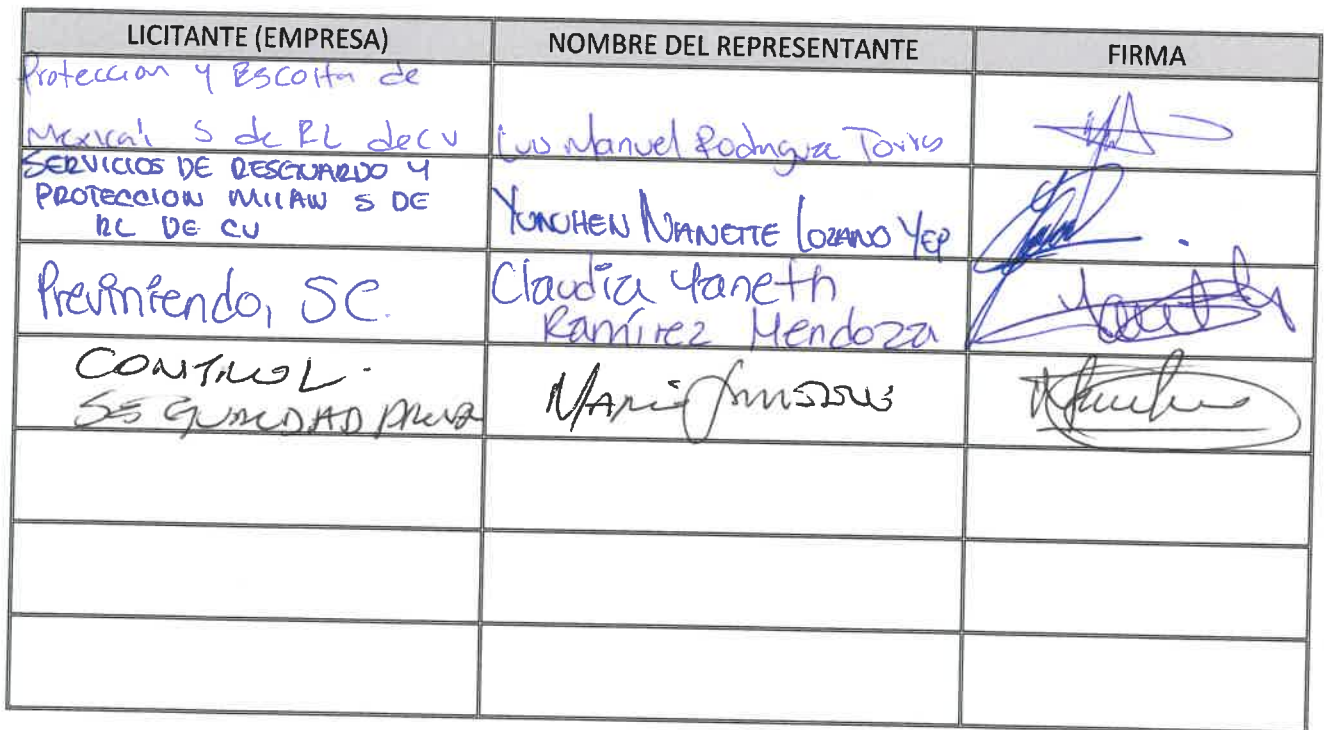 LICITANTE (EMPRESA)
NOMBRE DEL REPRESENTANTE
FIRMA
Proteccion y Escolta de
Mexicali S de RL de CV
Luis Manuel Rodriguez Torres
SERVICIOS DE RESGUARDO Y
PROTECCION MILAN S DE
RL DE CV
YUNUHEN NANETTE LOZANO YEP
Previniendo, SC.
Claudia Yaneth
Ramírez Mendoza
Yaneth
CONTROL
SEGURIDAD PRIVA
MARIO